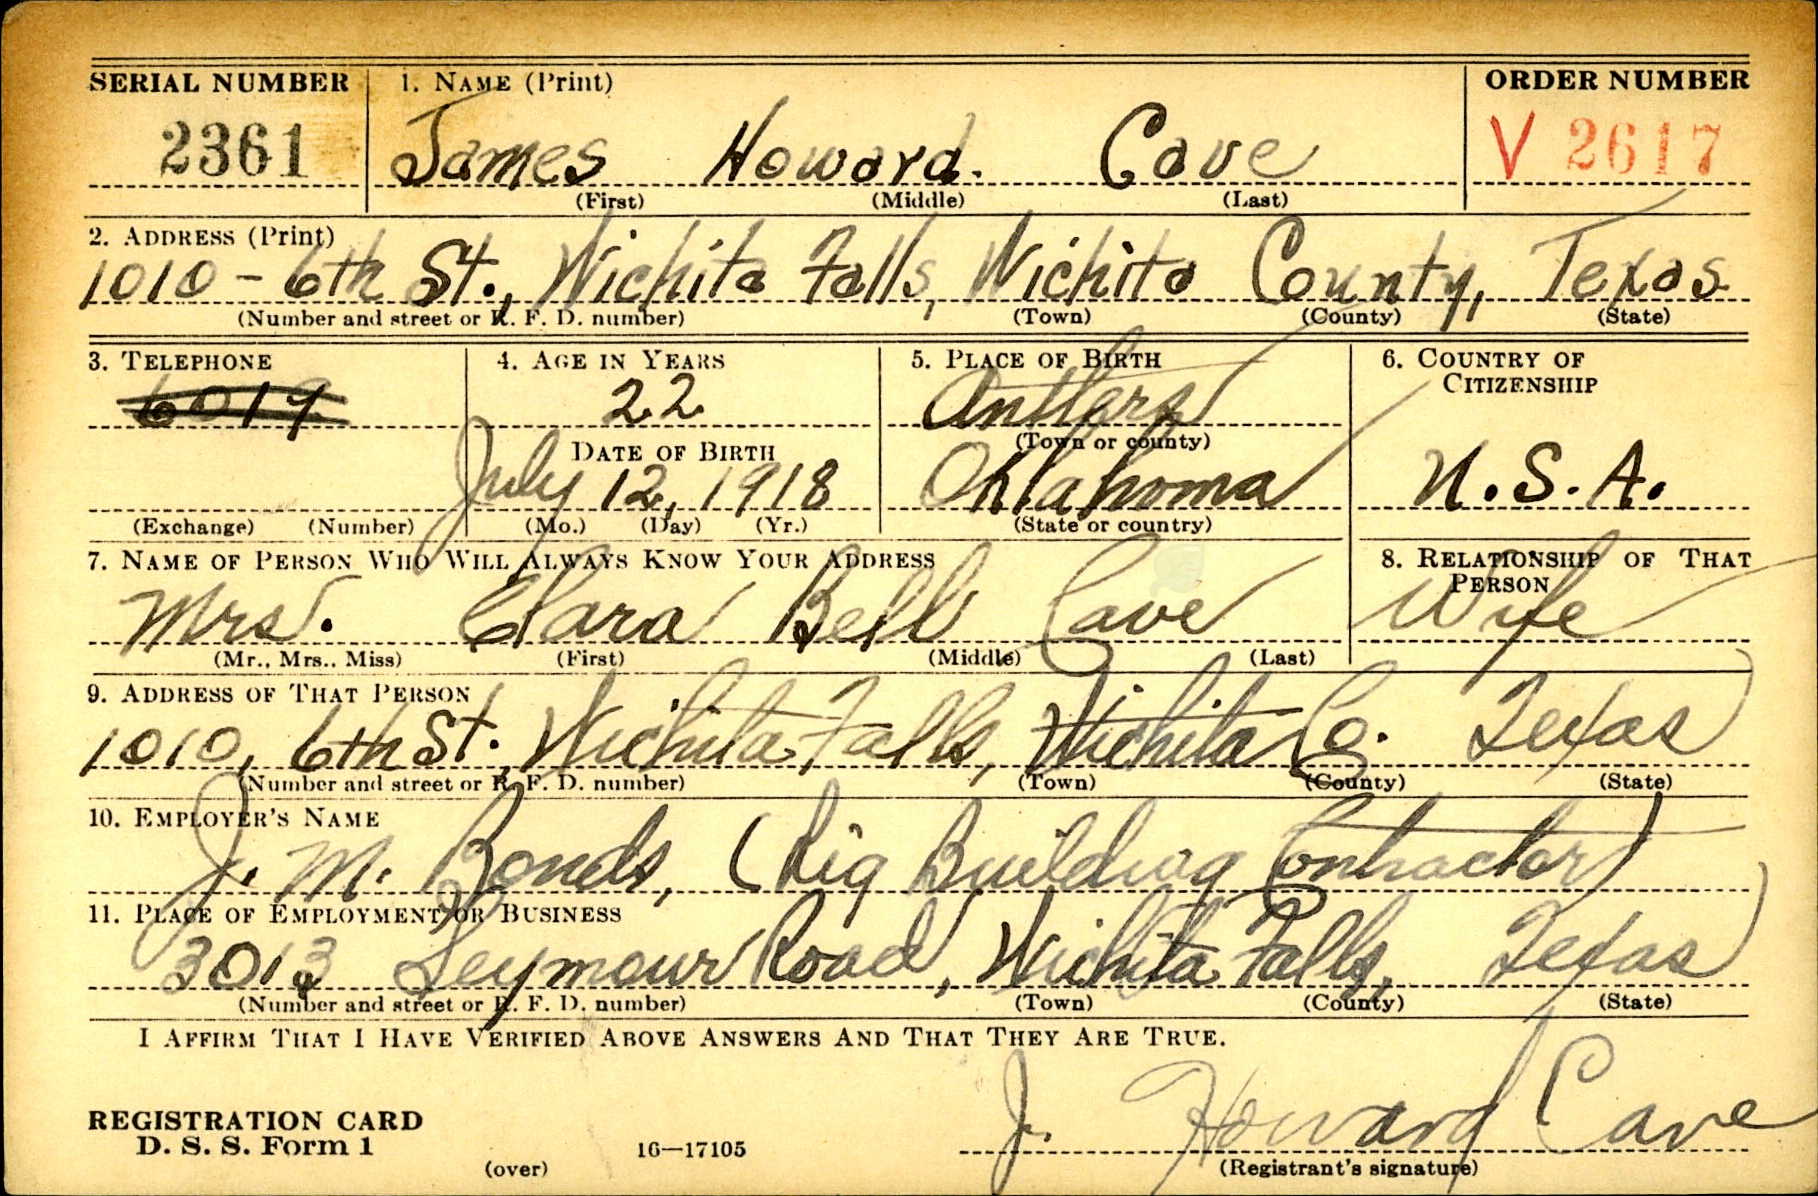 SERIAL NUMBER 1. NAME (Print) ORDER NUMBER
2361 James Howard. Cave V 2617
(First) (Middle) (Last)
2. ADDRESS (Print)
1010 - 6th St., Wichita Falls, Wichita County, Texas
(Number and street or R. F. D. number) (Town) (County) (State)
3. TELEPHONE 4. AGE IN YEARS 5. PLACE OF BIRTH 6. COUNTRY OF CITIZENSHIP
22 Antlers
DATE OF BIRTH (Town or county)
July 12, 1918 Oklahoma U.S.A.
(Exchange) (Number) (Mo.) (Day) (Yr.) (State or country)
7. NAME OF PERSON WHO WILL ALWAYS KNOW YOUR ADDRESS 8. RELATIONSHIP OF THAT PERSON
Mrs. Clara Bell Cave Wife
(Mr., Mrs., Miss) (First) (Middle) (Last)
9. ADDRESS OF THAT PERSON
1010, 6th St., Wichita Falls, Wichita Co. Texas
(Number and street or R. F. D. number) (Town) (County) (State)
10. EMPLOYER'S NAME
J. M. Bonds, (Rig Building Contractor)
11. PLACE OF EMPLOYMENT OR BUSINESS
3013 Seymour Road, Wichita Falls, Texas
(Number and street or R. F. D. number) (Town) (County) (State)
I AFFIRM THAT I HAVE VERIFIED ABOVE ANSWERS AND THAT THEY ARE TRUE.
J. Howard Cave
REGISTRATION CARD
D. S. S. Form 1 (over) 16—17105 (Registrant's signature)